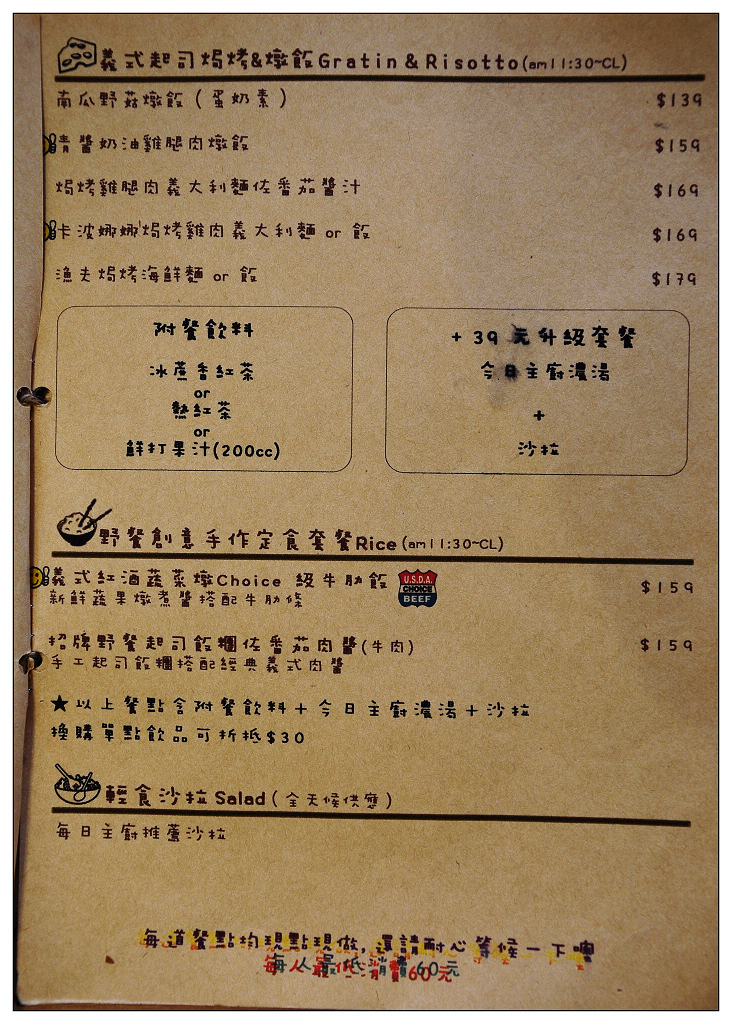 義式起司焗烤&燉飯Gratin & Risotto(am11:30~CL)
南瓜野菇燉飯(蛋奶素) $139
青醬奶油雞腿肉燉飯 $159
焗烤雞腿肉義大利麵佐番茄醬汁 $169
卡波娜娜焗烤雞肉義大利麵 or 飯 $169
漁夫焗烤海鮮麵 or 飯 $179
附餐飲料
冰蔗香紅茶
or
熱紅茶
or
鮮打果汁(200cc)
+ 39 元升級套餐
今日主廚濃湯
+
沙拉
野餐創意手作定食套餐Rice (am11:30~CL)
義式紅酒蔬菜燉Choice 級牛肋飯 $159
U.S.D.A.
CHOICE
BEEF
新鮮蔬果燉煮醬搭配牛肋條
招牌野餐起司飯糰佐番茄肉醬(牛肉) $159
手工起司飯糰搭配經典義式肉醬
★以上餐點含附餐飲料+今日主廚濃湯+沙拉
換購單點飲品可折抵$30
輕食沙拉 Salad (全天候供應)
每日主廚推薦沙拉
每道餐點均現點現做,還請耐心等候一下噢
每人最低消費60元